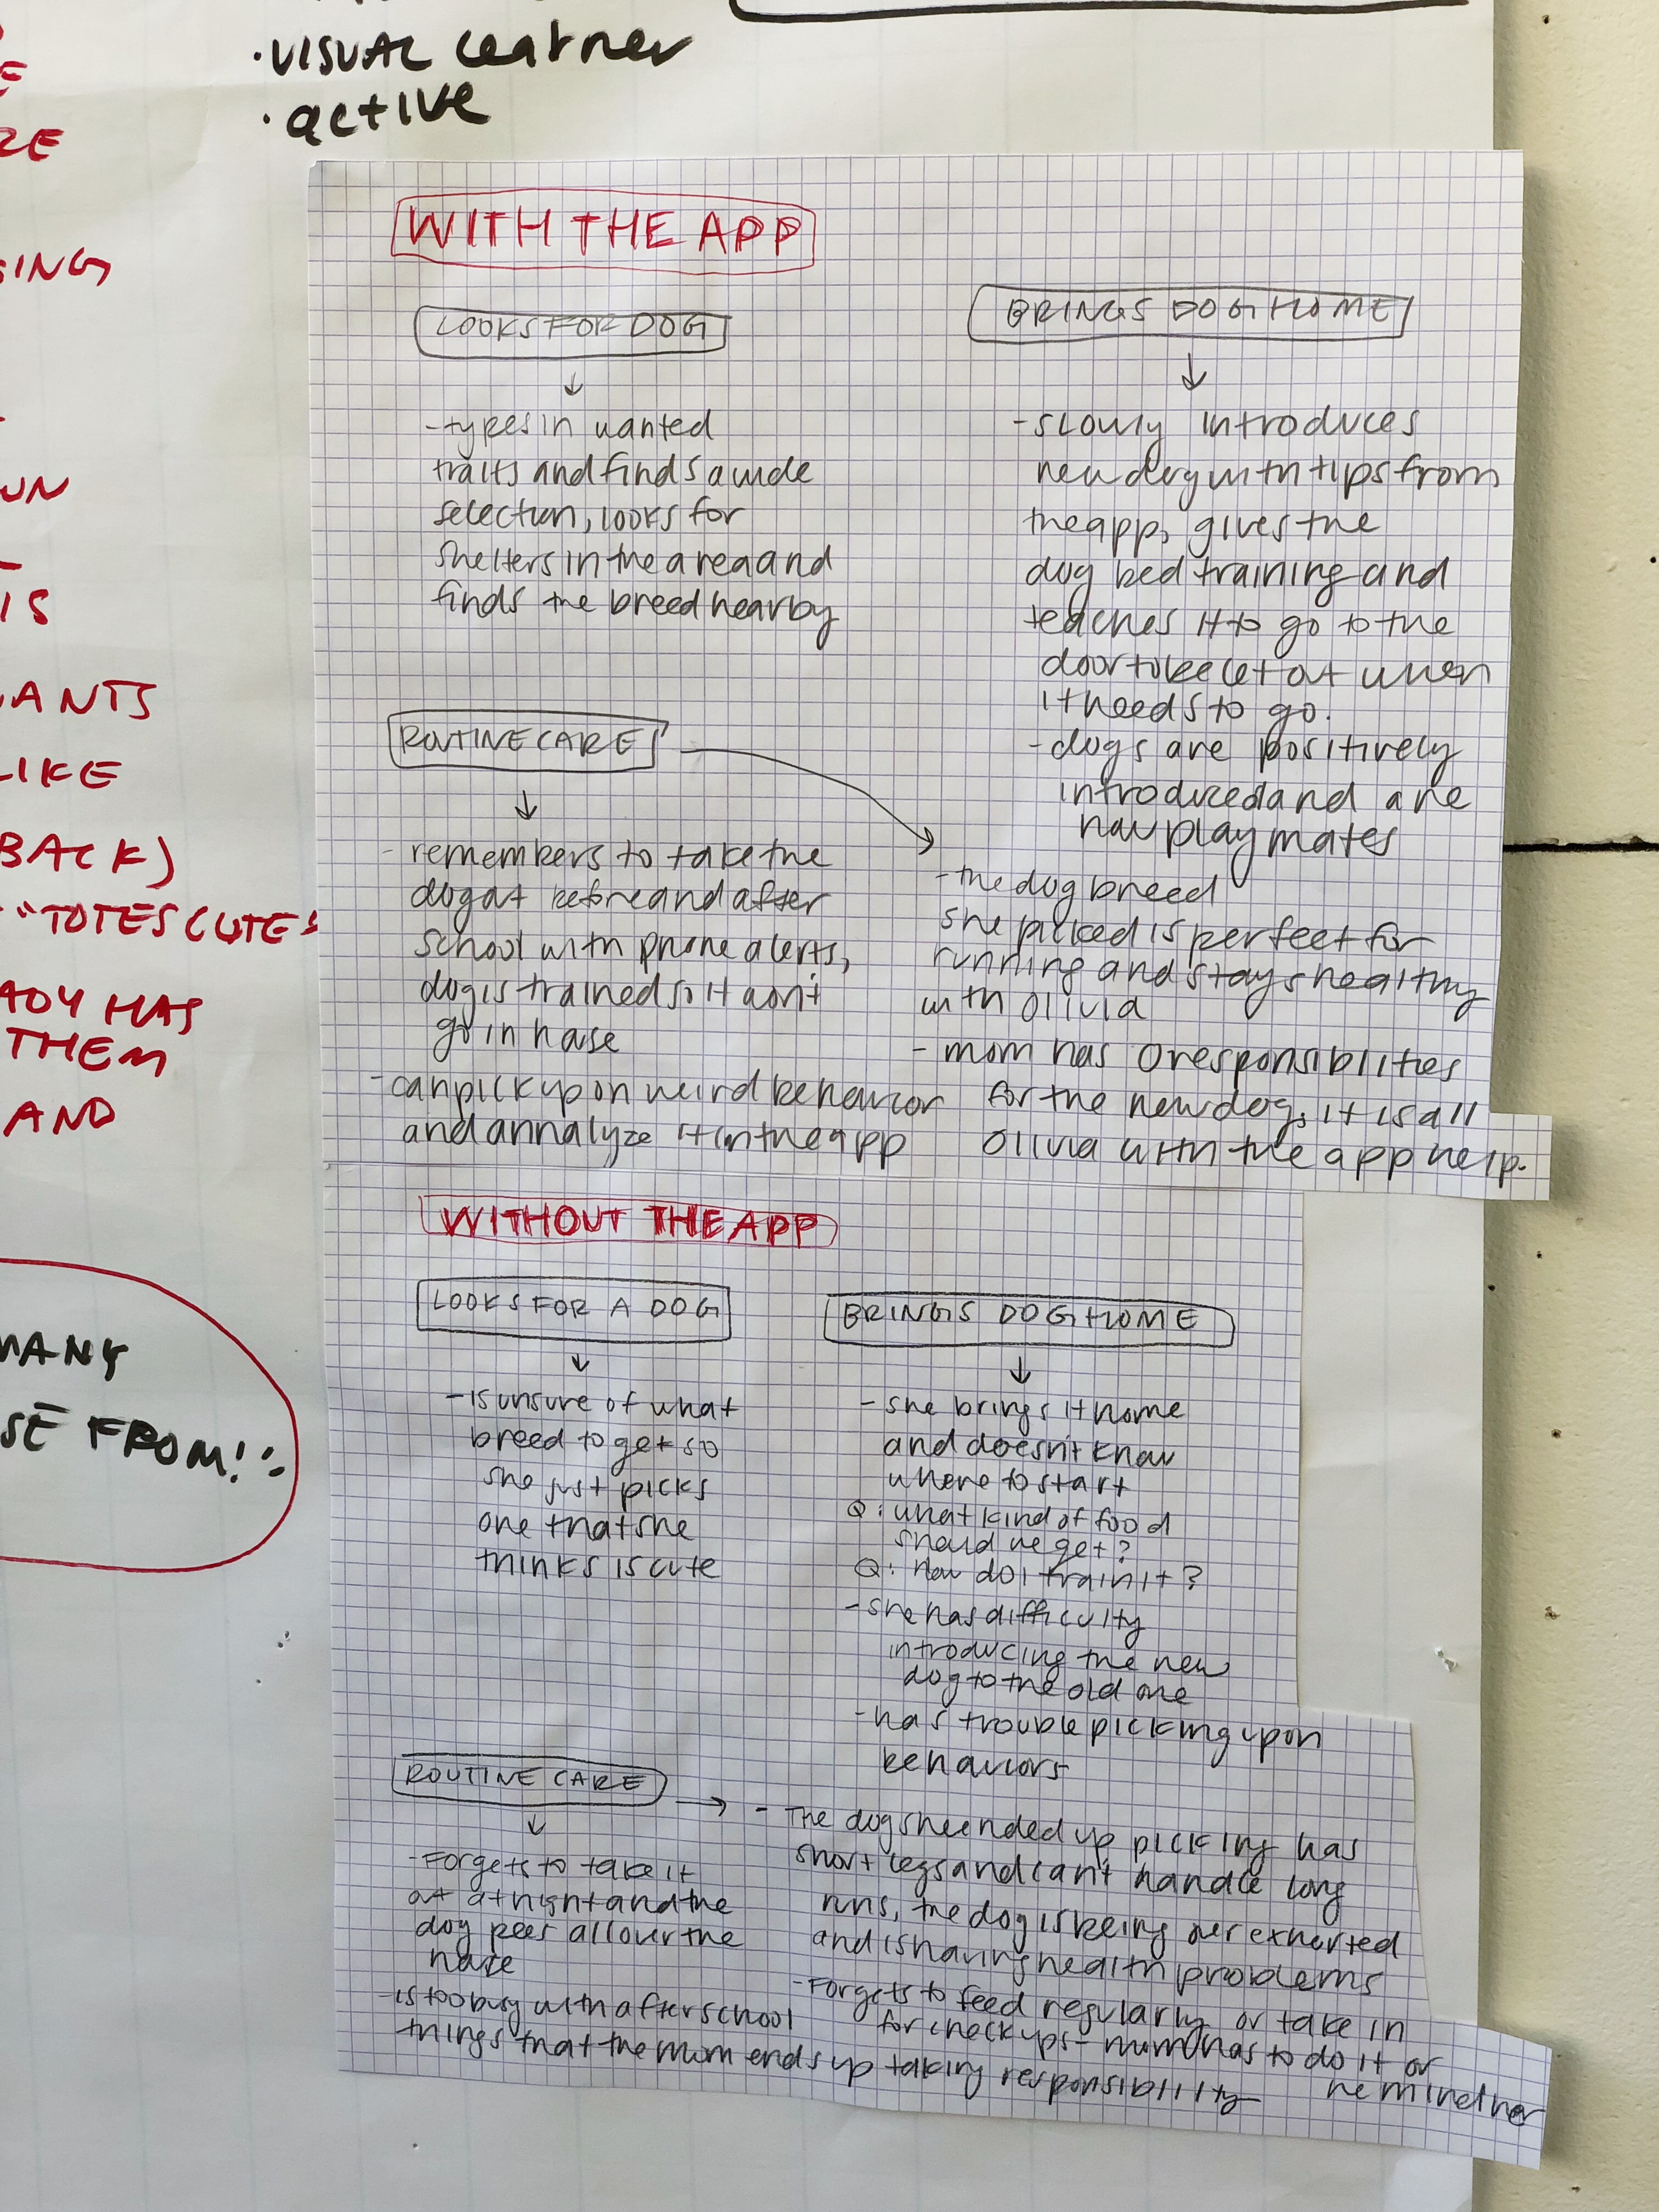 · VISUAL learner
· active
SING
ANTS
LIKE
BACK)
"TOTES CUTE"
ADY HAS
THEM
AND
MANY
SE FROM!
WITH THE APP
LOOKS FOR DOG
- types in wanted
traits and finds a wide
selection, looks for
shelters in the area and
finds the breed nearby
BRINGS DOG HOME
- slowly introduces
new dog with tips from
the app, gives the
dog bed training and
teaches it to go to the
door to be let out when
it needs to go.
- dogs are positively
introduced and are
now playmates
ROUTINE CARE
- remembers to take the
dog out before and after
school with phone alerts,
dog is trained so it won't
go in house
- can pick up on weird behavior
and annalyze it in the app
- the dog breed
she picked is perfect for
running and stays healthy
with Olivia
- mom has 0 responsiblities
for the new dog, it is all
Olivia with the app help.
WITHOUT THE APP
LOOKS FOR A DOG
- is unsure of what
breed to get so
she just picks
one that she
thinks is cute
BRINGS DOG HOME
- she brings it home
and doesn't know
where to start
Q: what kind of food
should we get?
Q: how do I train it?
- she has difficulty
introducing the new
dog to the old one
- has trouble picking up on
behaviors
ROUTINE CARE
- Forgets to take it
out at night and the
dog pees all over the
house
- is too busy with after school
things that the mom ends up taking responsiblity
- The dog she ended up picking has
short legs and can't handle long
runs, the dog is being over exherted
and is having health problems
- Forgets to feed regularly or take in
for checkups - mom has to do it or
remind her